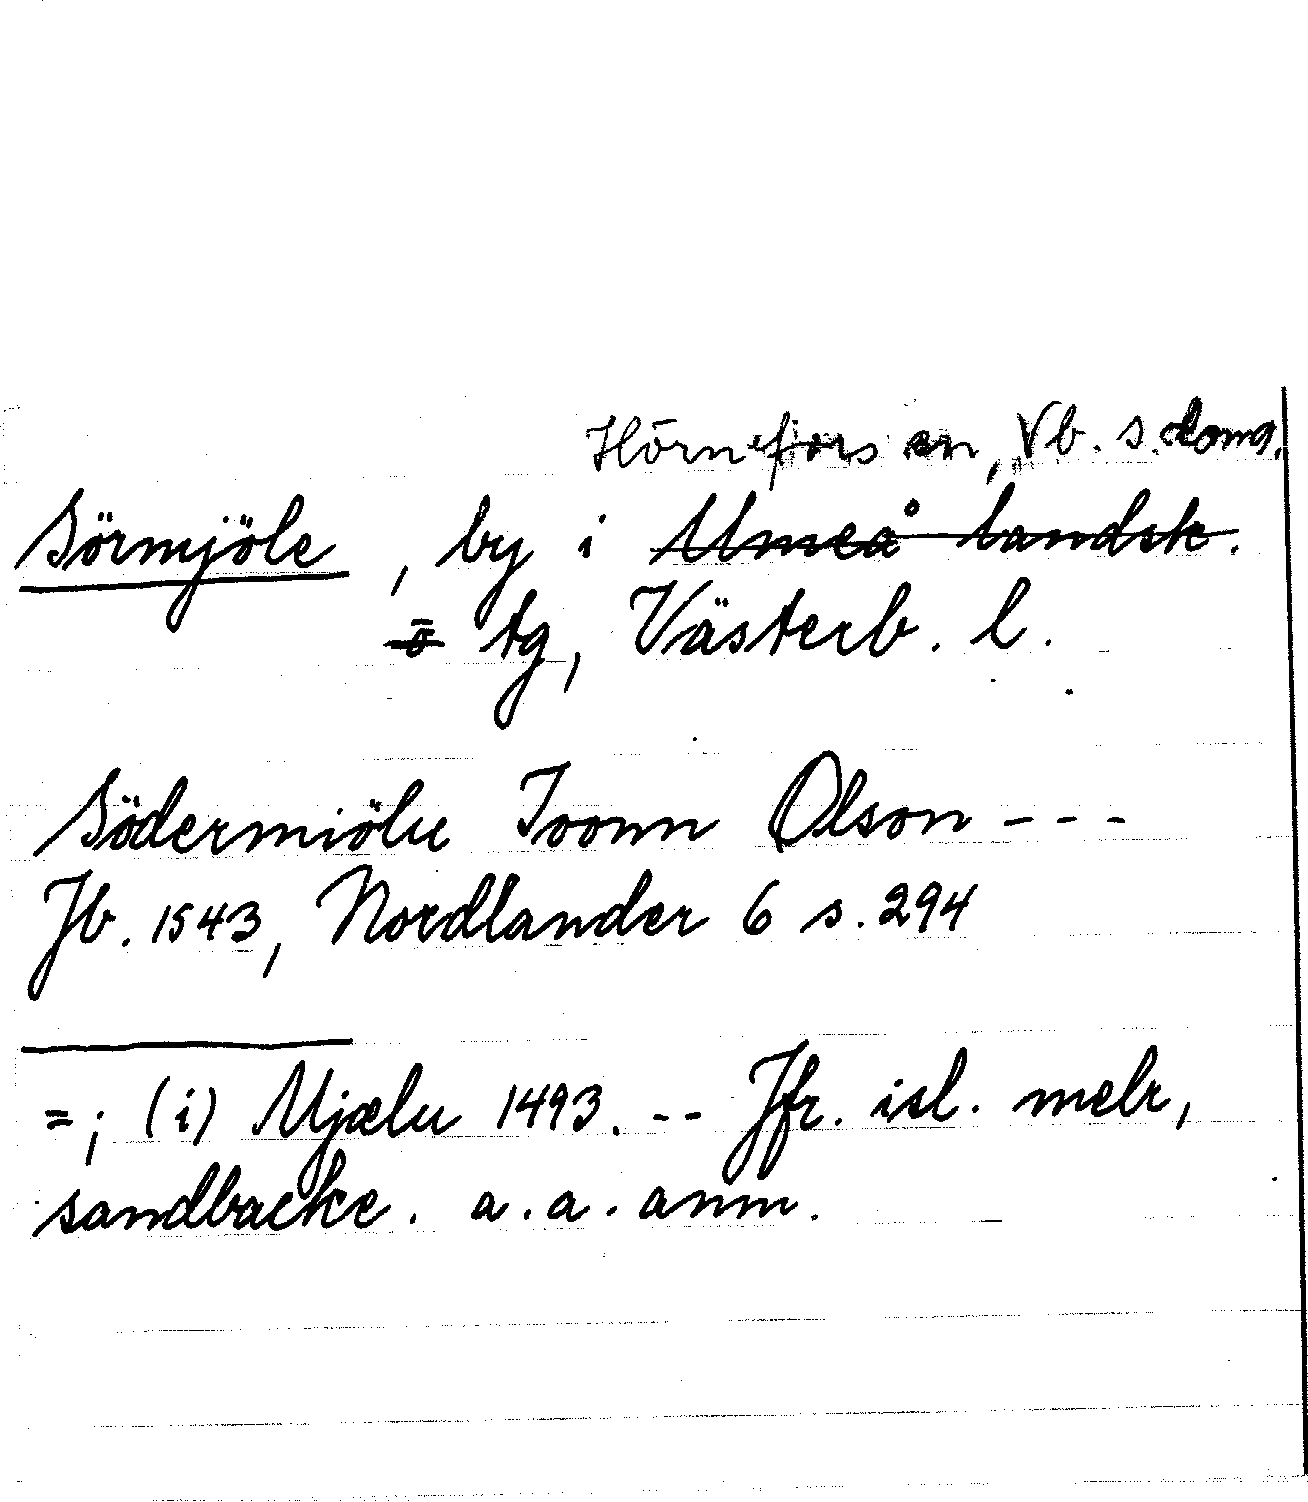 Hörnefors sn, Vb. s. doms.
Sörmjöle, by i Umeå landsk.
= tg, Västerb. l.
Södermiölu Joonn Olson - - -
Jb. 1543, Nordlander 6 s. 294
=; (i) Mjælu 1493. -- Jfr. isl. melr,
sandbacke. a. a. anm.